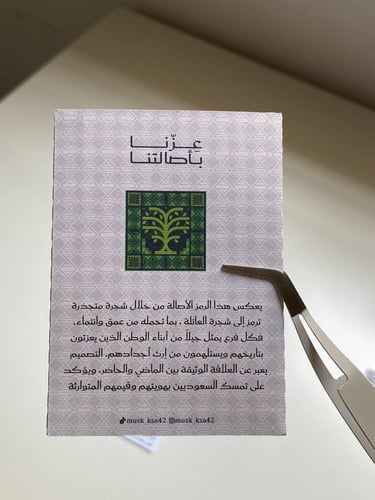 عزّنا
بأصالتنا
يعكس هذا الرمز الأصالة من خلال شجرة متجذرة
ترمز إلى شجرة العائلة ، بما تحمله من عمق وانتماء.
فكل فرع يمثل جيلاً من أبناء الوطن الذين يعتزون
بتاريخهم ويستلهمون من إرث أجدادهم. التصميم
يعبر عن العلاقة الوثيقة بين الماضي والحاضر، ويؤكد
على تمسك السعوديين بهويتهم وقيمهم المتوارثة
musk_ksa42 @musk_ksa42